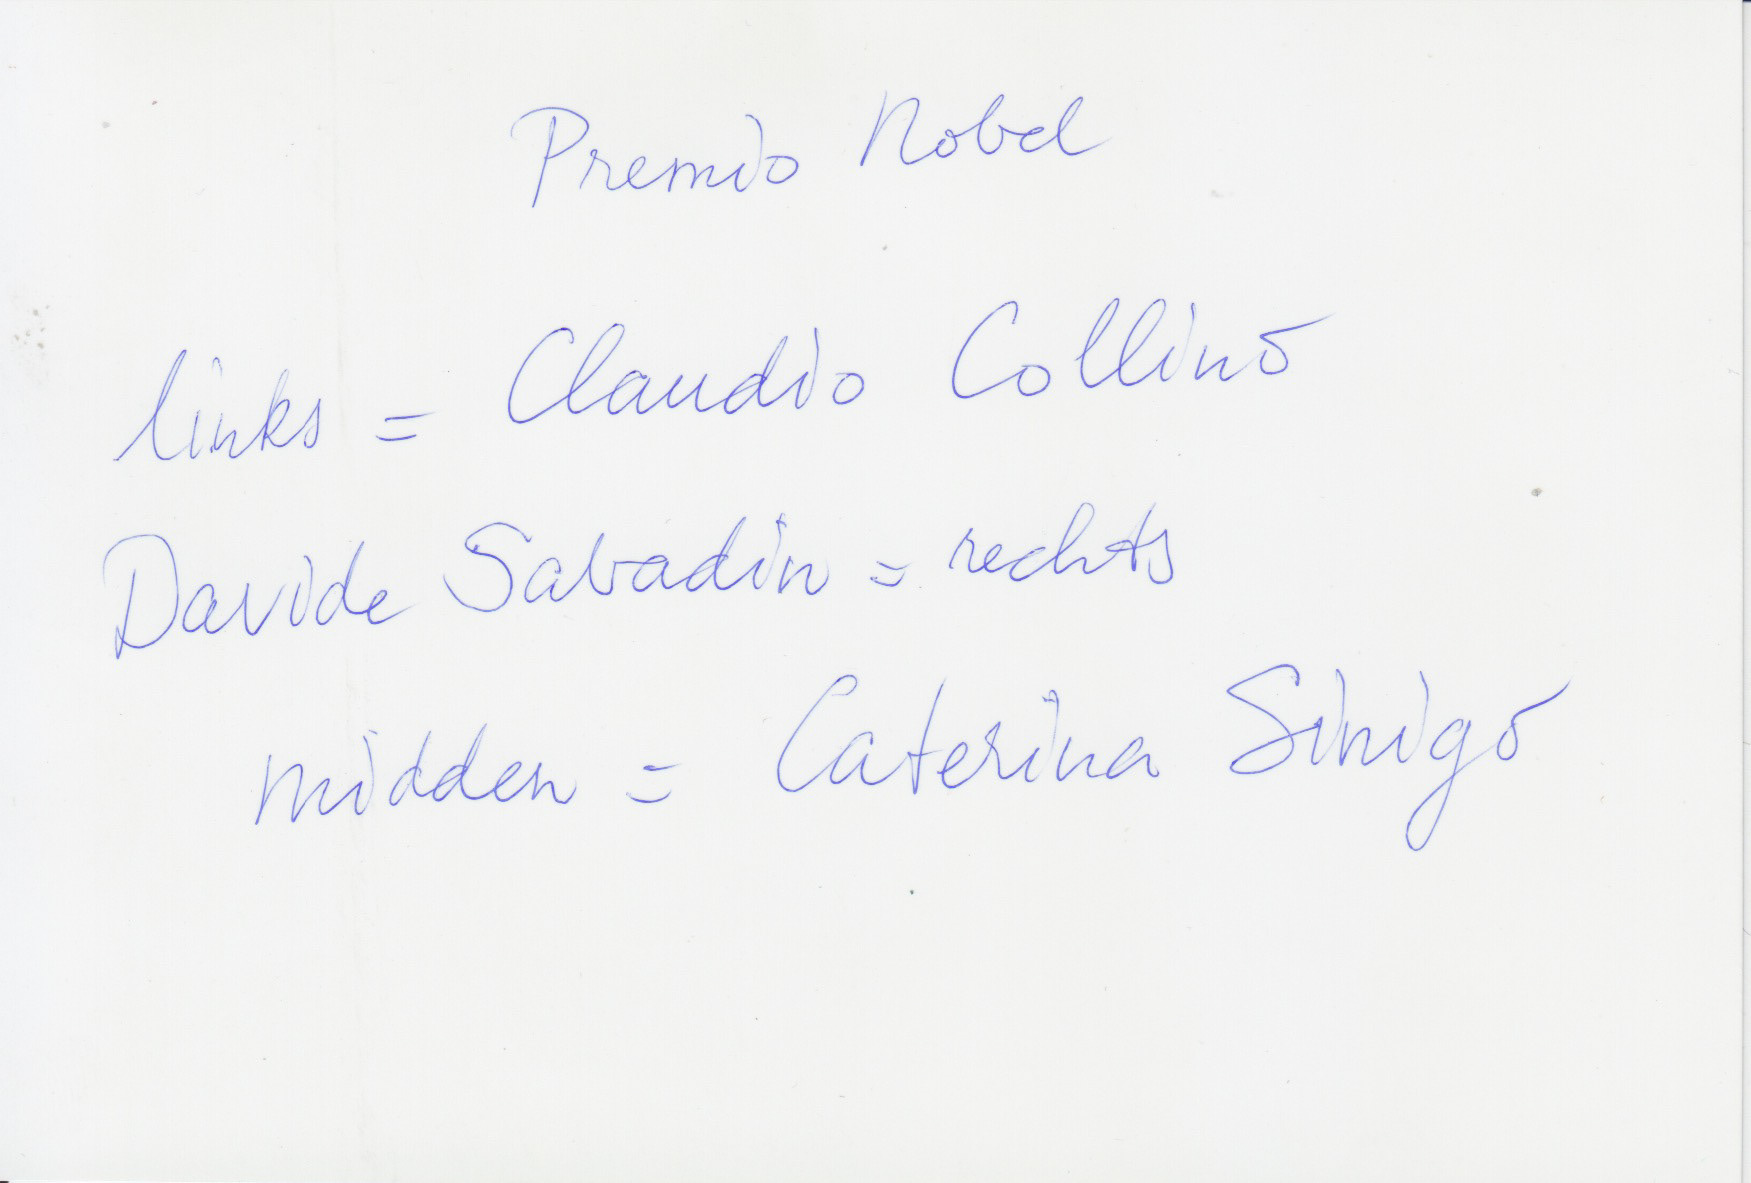 Premio Nobel
links = Claudio Collino
Davide Sabadin = rechts
midden = Caterina Sinigo